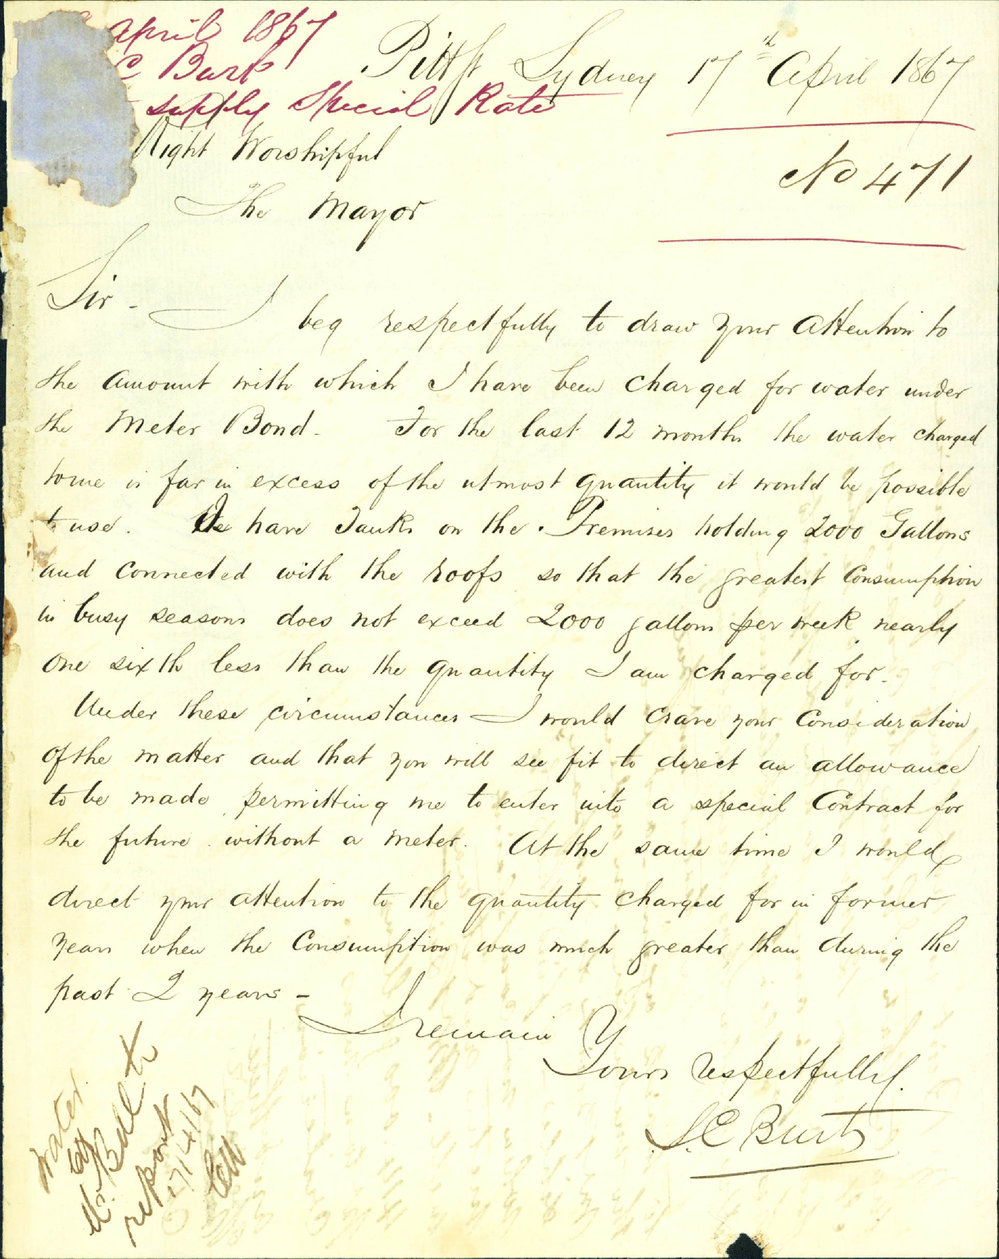 april 1867
C Burt
supply Special Rate
Pitt St Sydney 17th April 1867
No 471
Right Worshipful
The Mayor
Sir - I beg respectfully to draw your attention to
the amount with which I have been charged for water under
the Meter Bond. For the last 12 months the water charged
to me is far in excess of the utmost quantity it would be possible
to use. We have Tanks on the Premises holding 2000 Gallons
and connected with the roofs so that the greatest Consumption
in busy seasons does not exceed 2000 gallons per week nearly
one sixth less than the quantity I am charged for.
Under these circumstances I would crave your Consideration
of the matter and that you will see fit to direct an allowance
to be made permitting me to enter into a special Contract for
the future without a meter. At the same time I would
direct your attention to the quantity charged for in former
years when the Consumption was much greater than during the
past 2 years -
I remain
Yours respectfully
S.C Burt
Water
Mr Bell to
report
17/4/67